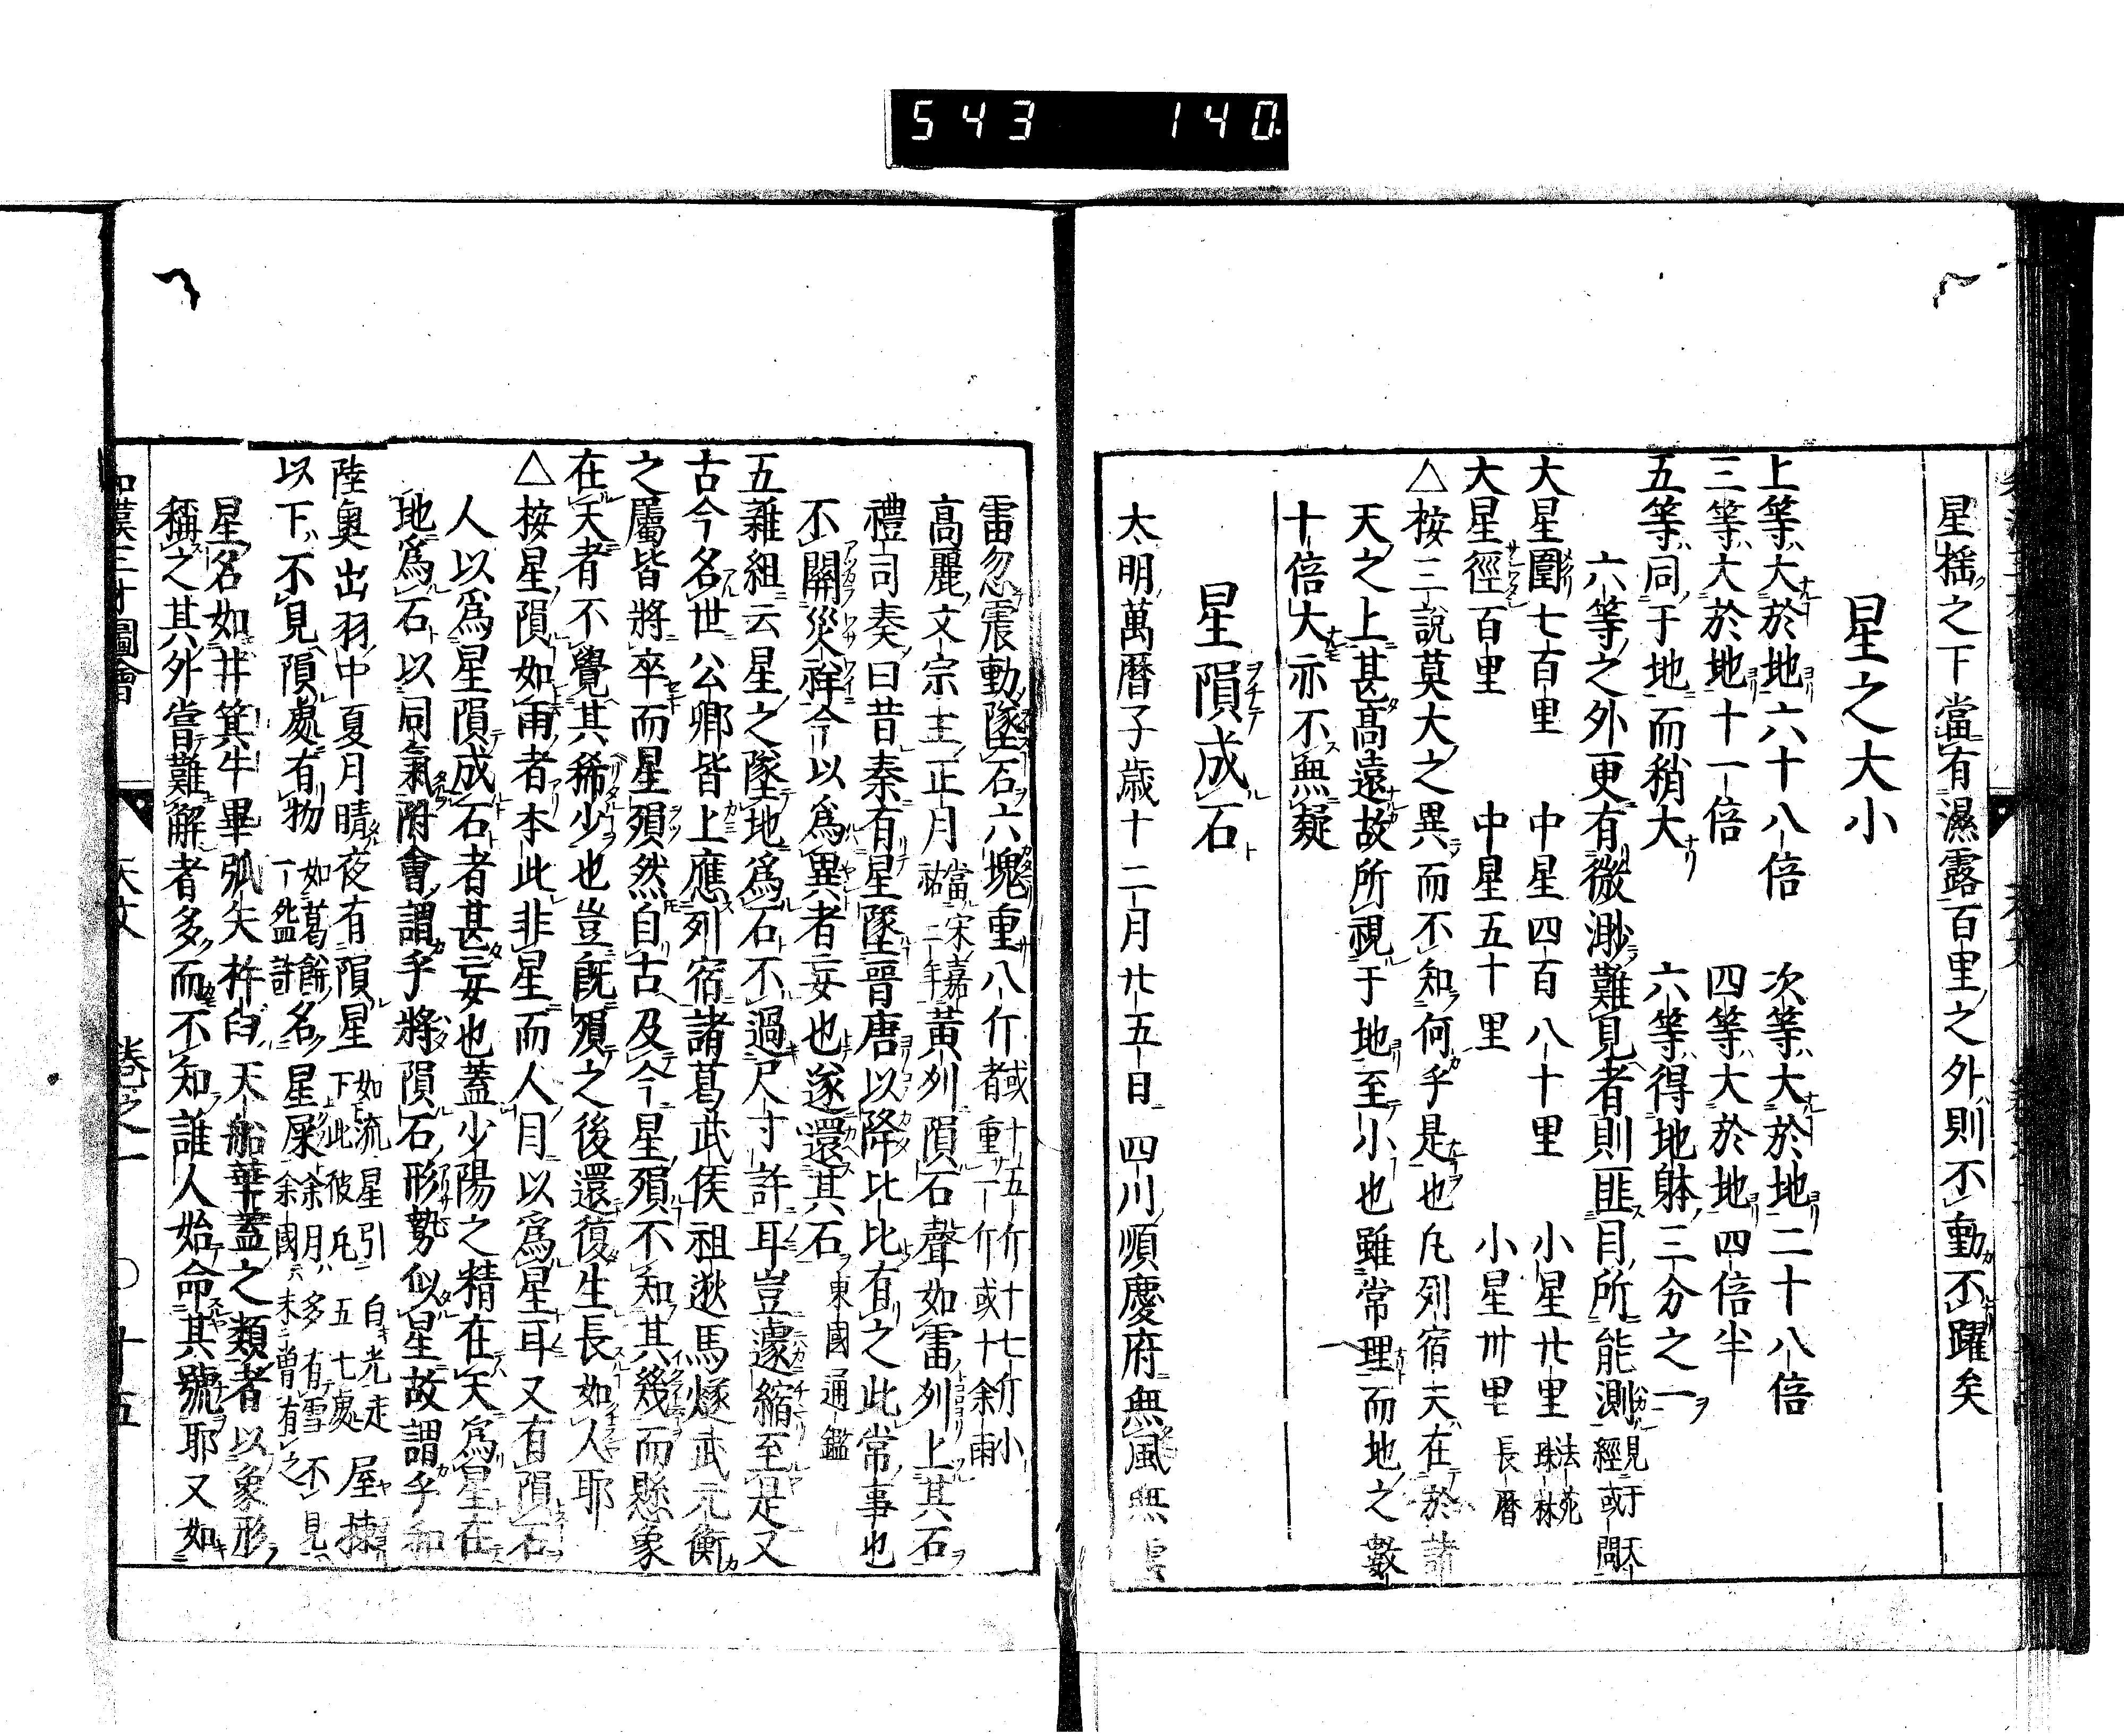 543 140.
星揺之下當有濕露百里之外則不動不躍矣
星之大小
上等大於地六十八倍 次等大於地二十八倍
三等大於地十一倍 四等大於地四倍半
五等同于地而稍大 六等得地躰三分之一
六等之外更有微渺難見者則匪目所能測 見于天經或問
大星圍七百里 中星四百八十里 小星廿里 法苑珠林
大星徑百里 中星五十里 小星卅里 長暦
△按三説莫大之異而不知何乎是也凡列宿天在於諸
天之上甚髙遠故所視于地至小也雖常理而地之數
十倍大亦不無疑
星隕成石
大明萬暦子歳十二月廿五日四川順慶府無風無雲
雷忽震動墜石六塊重八斤 或十五斤十七斤小者重一斤或十余兩
髙麗文宗王正月 當宋嘉祐二年 黄列隕石聲如雷列上其石
禮司奏曰昔秦有星墜晋唐以降比比有之此常事也
不關災祥今以爲異者妄也遂還其石 東國通鑑
五雜組云星之墜地爲石不過尺寸許耳豈遽縮至是又
古今名世公卿皆上應列宿諸葛武侯祖逖馬燧武元衡
之屬皆將卒而星殞然自古及今星殞不知其幾而懸象
在天者不覺其稀少也豈既殞之後還復生長如人耶
△按星隕如雨者本此非星而人目以爲星耳又有隕石
人以爲星隕成石者甚妄也蓋少陽之精在天爲星在
地爲石以同氣附會謂乎將隕石形勢似星故謂乎和
陸奥出羽中夏月晴夜有隕星 如流星引白光走下此彼凡五七處 屋棟
以下不見隕處有物 如葛餅一盌許 名星屎 余月多有雪不見余國未曽有之
星名如井箕牛畢弧矢杵臼天船華蓋之類者以象形
稱之其外當難解者多而不知誰人始命其號耶又如
和漢三才圖會 天文 巻之一 〇十五